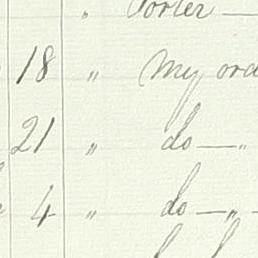 " Porter —
18 " My ord
21 " do — "
4 " do — " —